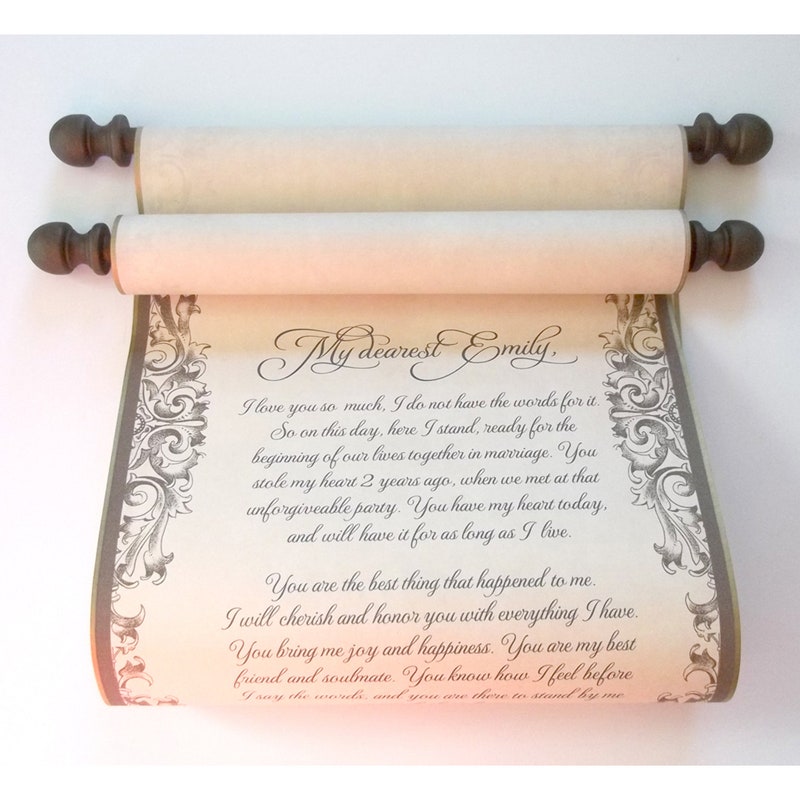 My dearest Emily,
I love you so much, I do not have the words for it.
So on this day, here I stand, ready for the
beginning of our lives together in marriage. You
stole my heart 2 years ago, when we met at that
unforgiveable party. You have my heart today,
and will have it for as long as I live.
You are the best thing that happened to me.
I will cherish and honor you with everything I have.
You bring me joy and happiness. You are my best
friend and soulmate. You know how I feel before
I say the words, and you are there to stand by me